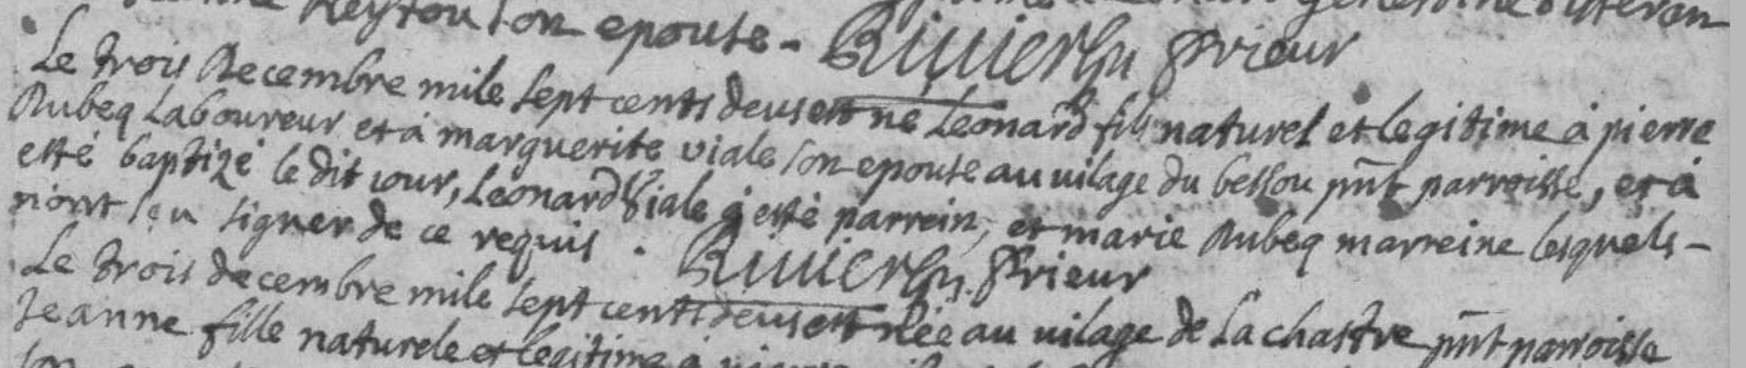 son epouse - Rivier Prieur
Le trois Decembre mile sept cents deus est né Leonard fils naturel et legitime à pierre
Aubeq Laboureur et à marguerite viale son epouse au vilage du bessou pñt parroisse, et à
esté baptizé le dit iour, Leonard Viale à esté parrein, et marie Aubeq marreine lesquels -
n'ont seu signer de ce requis. Rivier Prieur
Le trois decembre mile sept cents deus est née au vilage de La chastre pñt parroisse
Jeanne fille naturele et legitime à